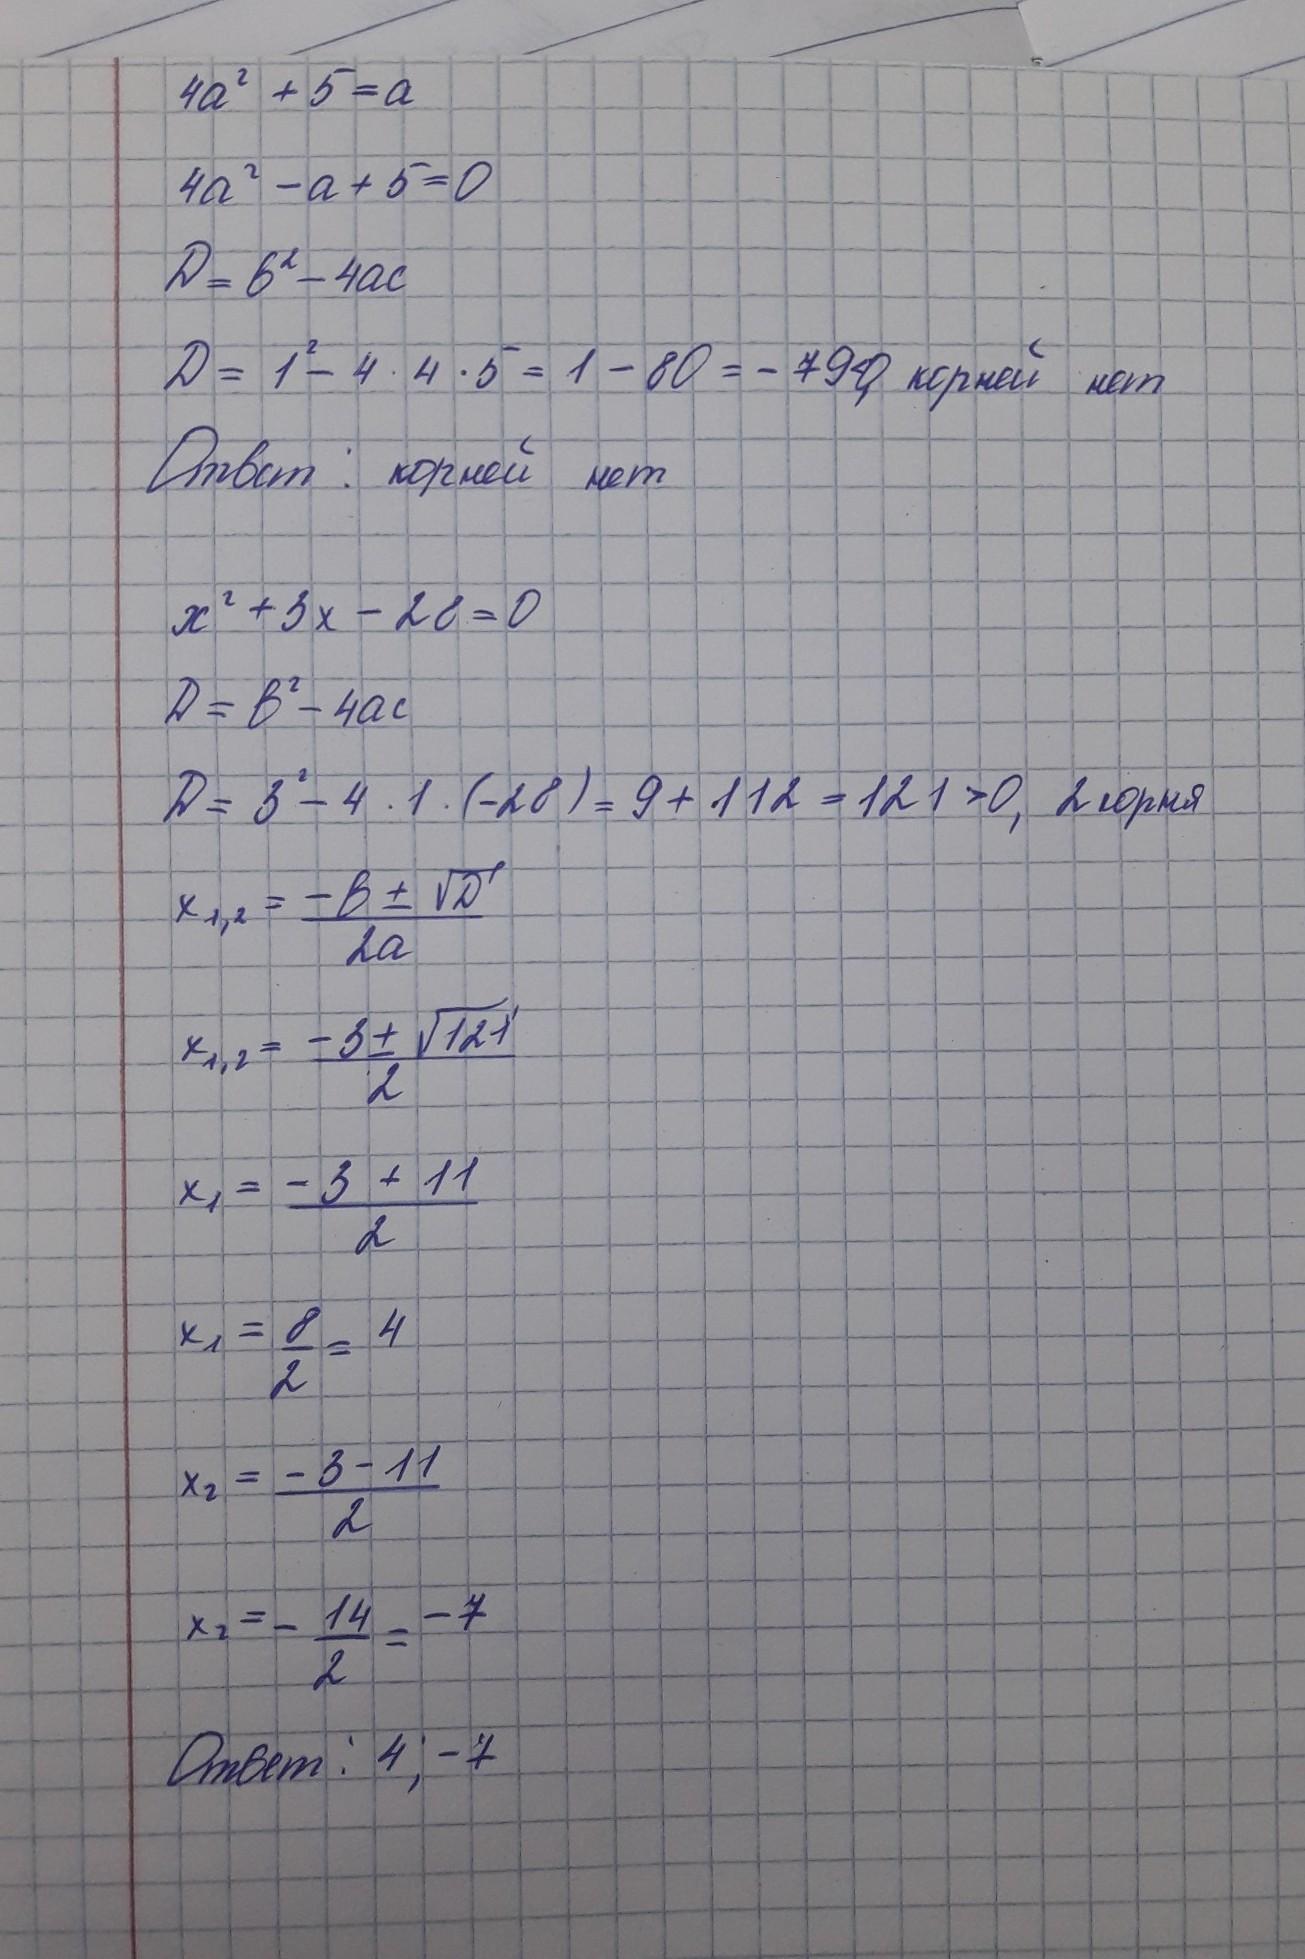 4a² + 5 = a
4a² - a + 5 = 0
D = b² - 4ac
D = 1² - 4 · 4 · 5 = 1 - 80 = -79<0, корней нет
Ответ: корней нет
x² + 3x - 28 = 0
D = b² - 4ac
D = 3² - 4 · 1 · (-28) = 9 + 112 = 121 > 0, 2 корня
x₁,₂ = (-b ± √D)/2a
x₁,₂ = (-3 ± √121)/2
x₁ = (-3 + 11)/2
x₁ = 8/2 = 4
x₂ = (-3 - 11)/2
x₂ = - 14/2 = -7
Ответ: 4; -7